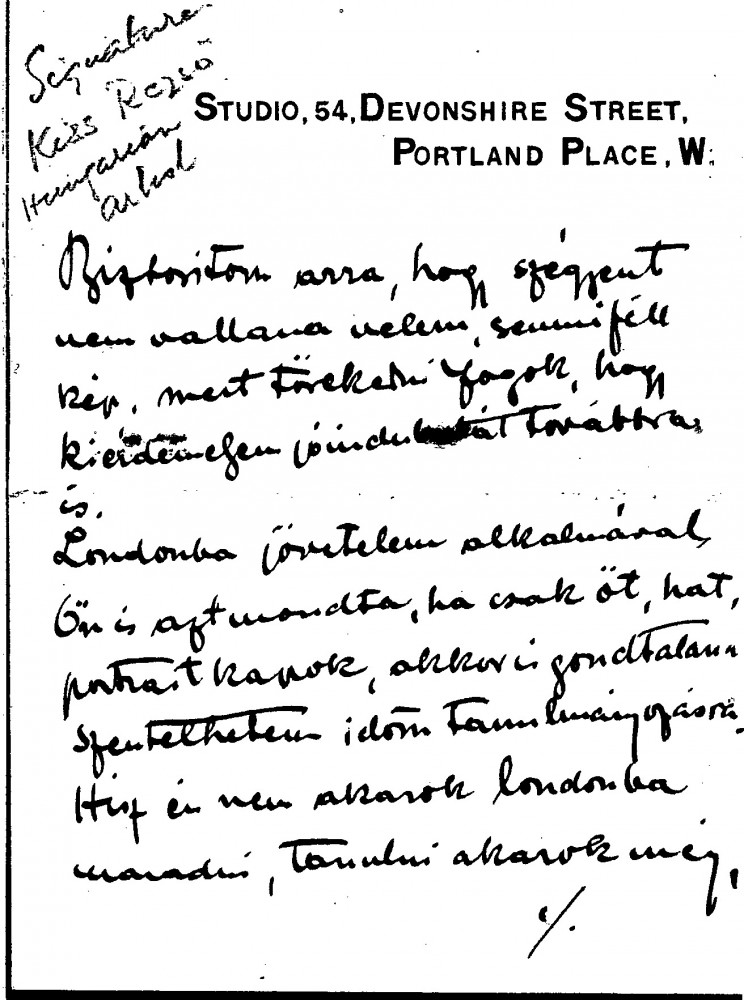 Signature
Kiss Rezső
Hungarian
artist
STUDIO, 54, DEVONSHIRE STREET,
PORTLAND PLACE, W.
Biztositom arra, hogy szégyent
nem vallana velem, semmiféle
kép, mert törekedni fogok, hogy
kiérdemeljem jóindulatát továbbra
is.
Londonba jövetelem alkalmával,
Ön is azt mondta, ha csak öt, hat,
portrait kapok, akkor is gondtalanul
szentelhetem időm tanulmányozásra.
Hisz én nem akarok londonba
maradni, tanulni akarok még,
./.